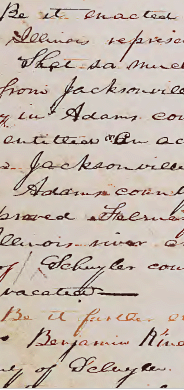 Be it enacted
Illinois repres
That so much
from Jacksonville
in Adams cou
entitled "An ac
Jacksonville
Adams count
proved Februar
llinois river
of Schuyler cou
vacated
Be it further e
Benjamin
of Schuyler